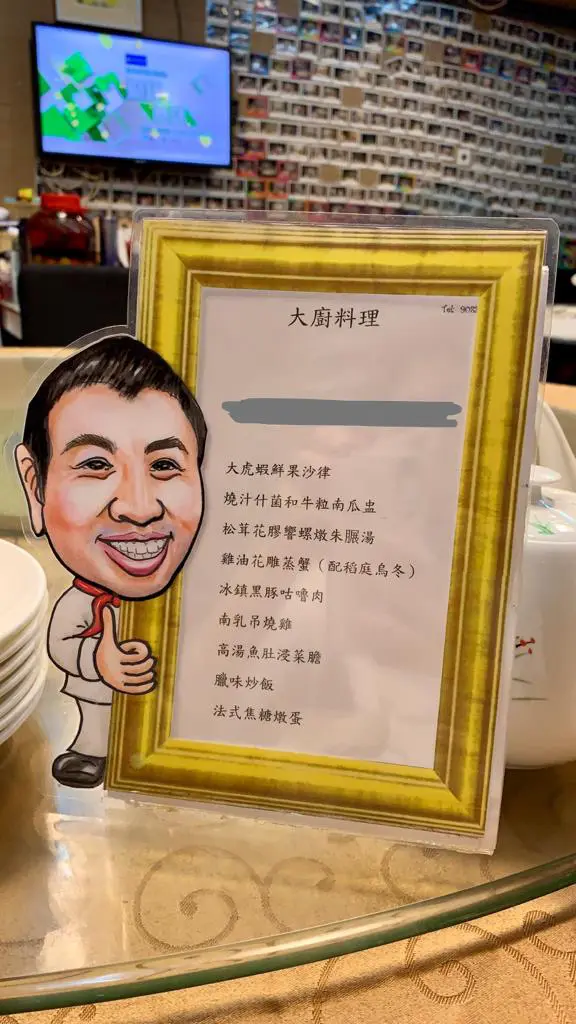 大廚料理
Tel: 90
大虎蝦鮮果沙律
燒汁什菌和牛粒南瓜盅
松茸花膠響螺燉朱𦟌湯
雞油花雕蒸蟹（配稻庭烏冬）
冰鎮黑豚咕嚕肉
南乳吊燒雞
高湯魚肚浸菜膽
臘味炒飯
法式焦糖燉蛋